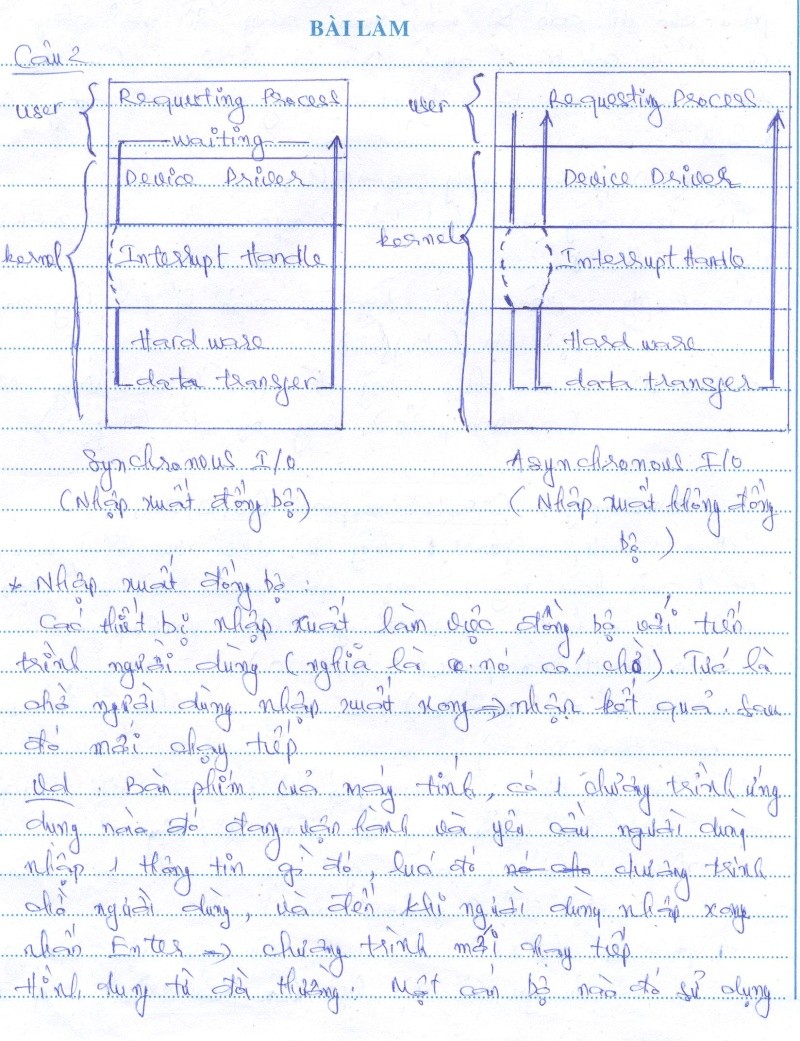 BÀI LÀM
Câu 2
user
Requesting Process
waiting
Device Driver
kernel
Interrupt Handle
Hard ware
data transfer
Synchronous I/O
(Nhập xuất đồng bộ)
user
Requesting Process
Device Driver
kernel
Interrupt Handle
Hard ware
data transfer
Asynchronous I/O
(Nhập xuất không đồng
bộ)
* Nhập xuất đồng bộ :
Các thiết bị nhập xuất làm việc đồng bộ với tiến
trình người dùng (nghĩa là nó có chờ). Tức là
chờ người dùng nhập xuất xong → nhận kết quả. Sau
đó mới chạy tiếp
Vd . Bàn phím của máy tính, có 1 chương trình ứng
dụng nào đó đang vận hành và yêu cầu người dùng
nhập 1 thông tin gì đó, lúc đó nó cho chương trình
chờ người dùng, và đến khi người dùng nhập xong
nhấn Enter → chương trình mới chạy tiếp
Hình dung từ đời thường : Một cán bộ nào đó sử dụng